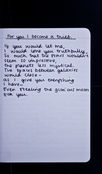 For you I became a thief.
If you would let me,
I would love you truthfully.
So much that the stars wouldn't
seem so impressive,
The planets less mystical.
The spaces between galaxies
would close -
As I give you everything
I have.
Even stealing the sun and moon
for you.